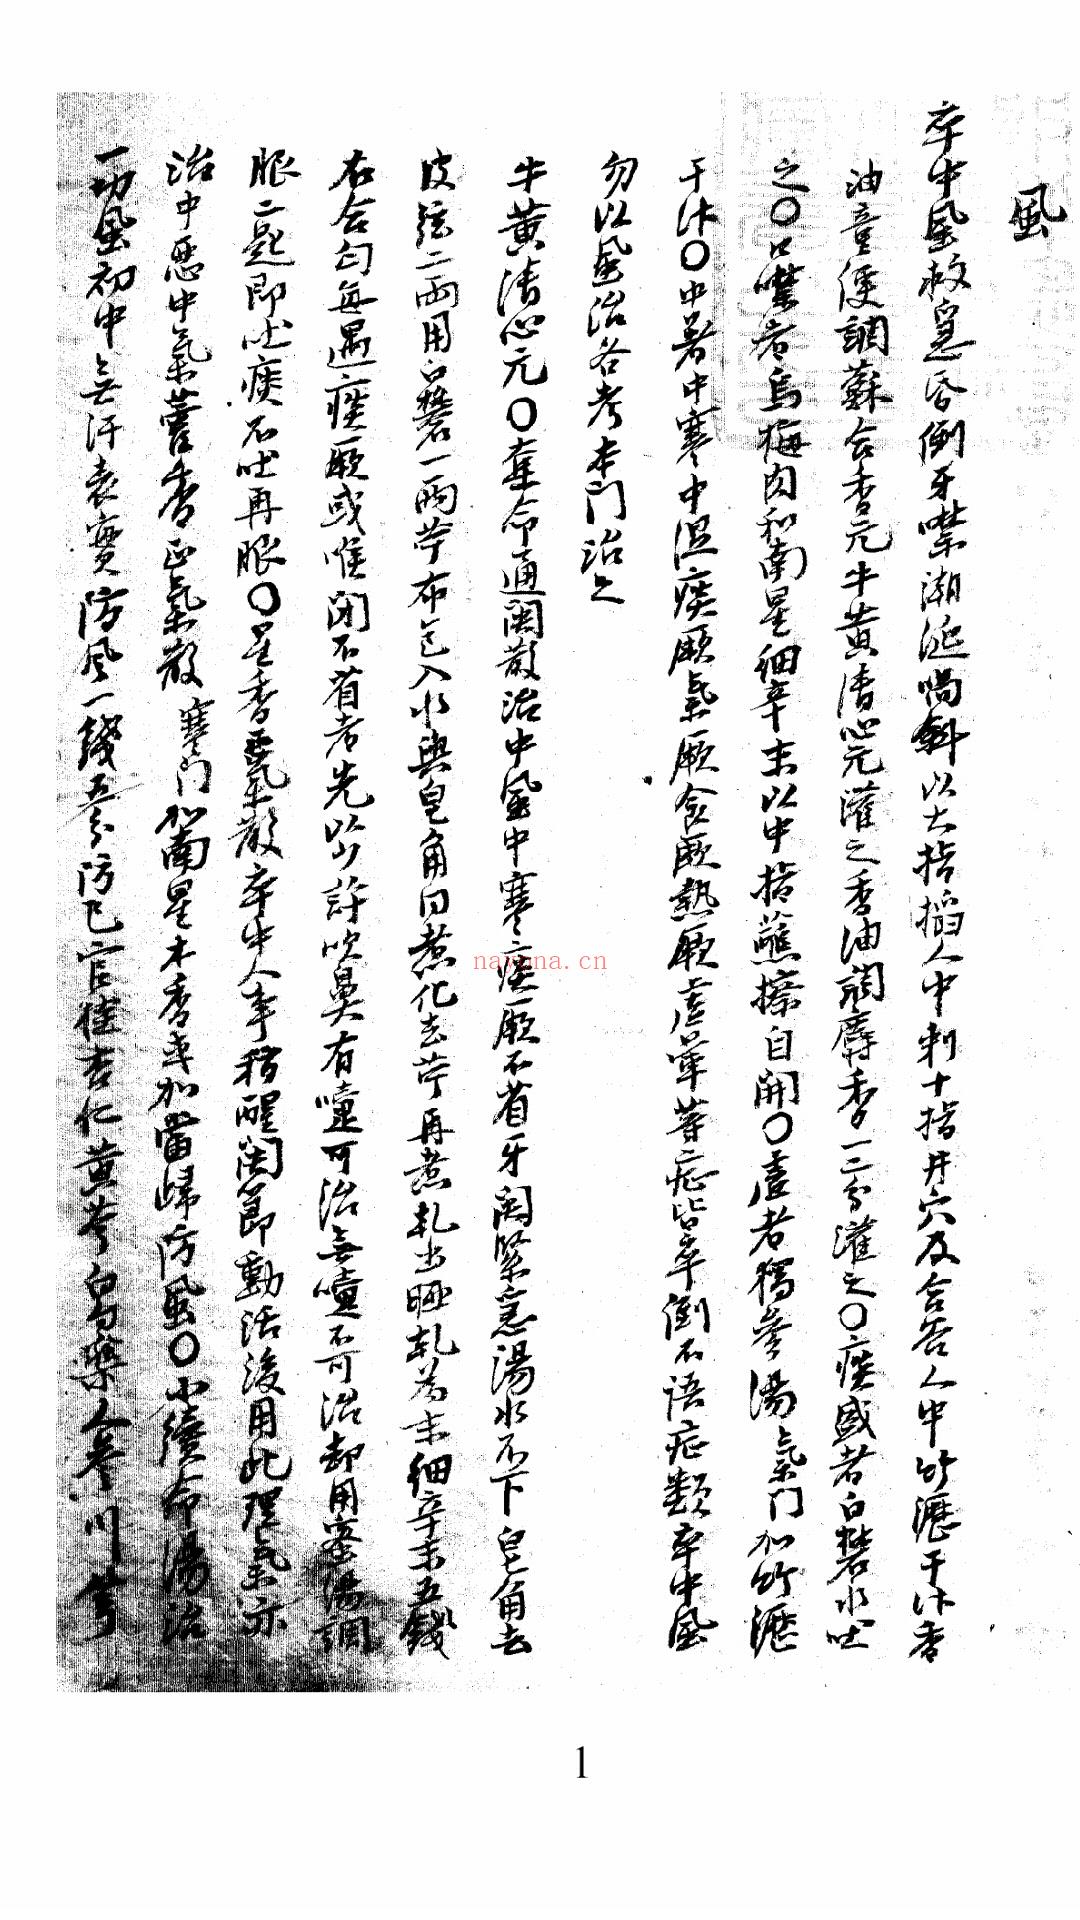 風
卒中風救急昏倒牙噤潮涎喎斜以大指搯人中刺十指井穴及合谷人中竹瀝干汁香
油童便調蘇合香元牛黄清心元灌之香油調麝香一二分灌之〇痰盛者白礬水吐
之〇口噤者烏梅肉和南星細辛末以中指蘸擦自開〇虛者獨參湯氣门加竹瀝
干汁〇中暑中寒中湿痰厥氣厥食厥熱厥虛暈等症皆卒倒不语症類卒中風
勿以風治各考本门治之
牛黄清心元〇奪命通関散治中風中寒痰厥不省牙関緊急湯水不下皂角去
皮弦二兩用白礬一兩苧布包入水與皂角同煮化去苧再煮乹出晒乹為末細辛末五錢
右合匀每遇痰厥或喉闭不省者先以少許吹鼻有嚏可治無嚏不可治却用蜜湯調
服二匙即吐痰不吐再服〇星香正氣散卒中人事稍醒関節動活後用此理氣亦
治中惡中氣藿香正氣散寒门加南星木香或加當歸防風〇小續命湯治
一切風初中無汗表實防风一錢五分防己官桂杏仁黄芩白芍藥人參川芎
navona.cn
1